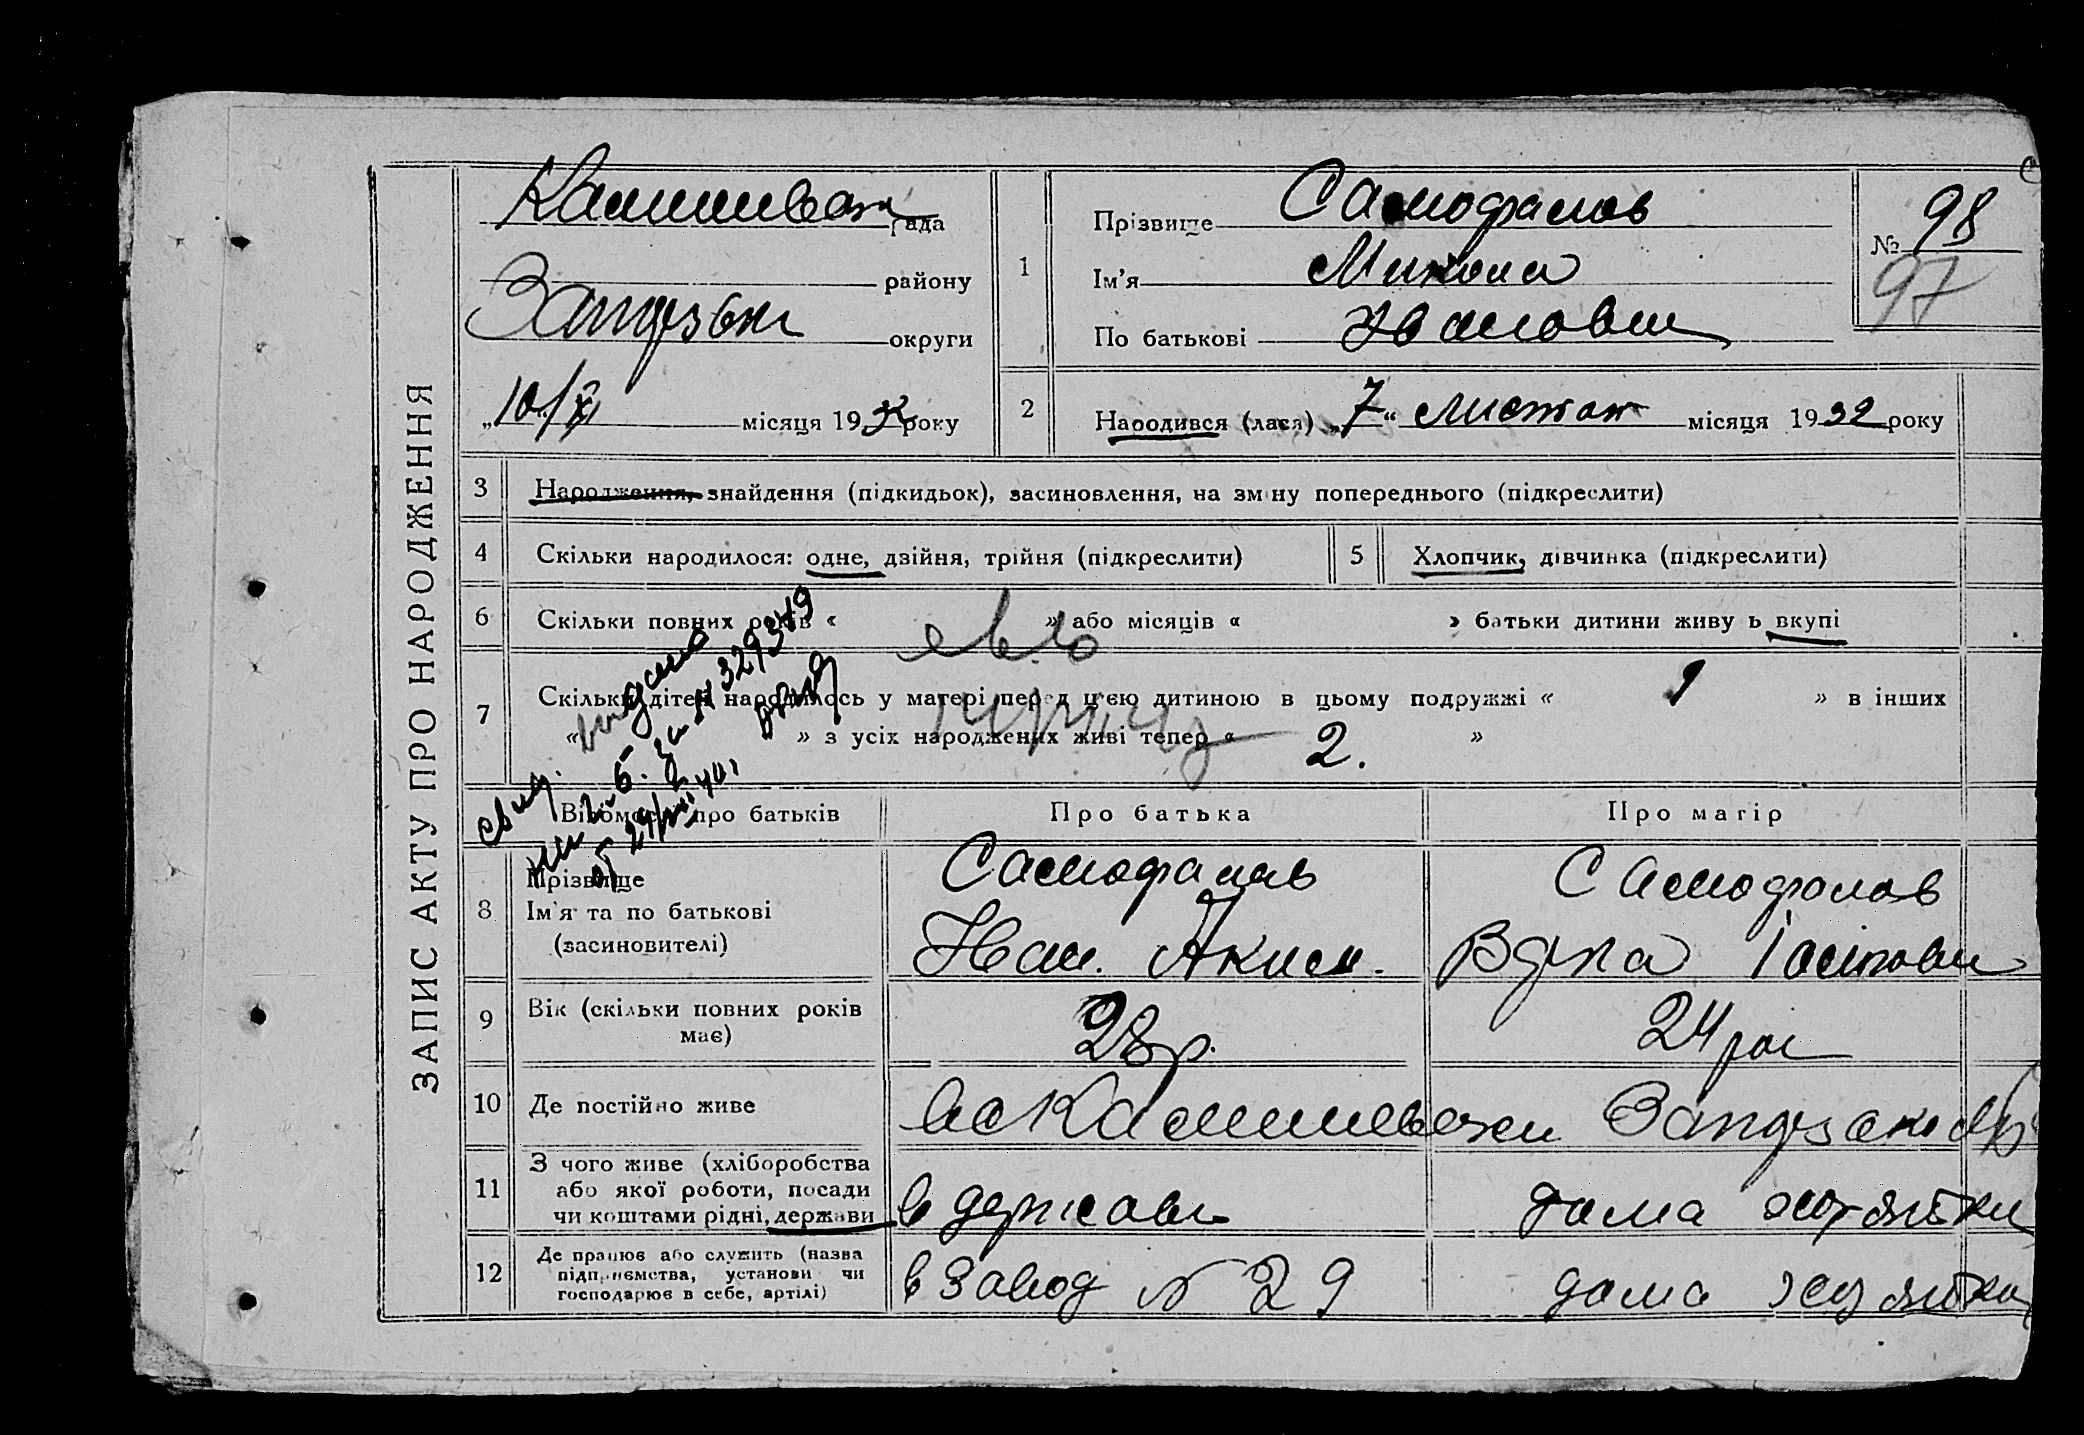 ЗАПИС АКТУ ПРО НАРОДЖЕННЯ
рада
району
округи
10/XI місяця 1932 року
1
Прізвище Самофалов
Ім'я Микола
По батькові Иванович
№ 98
97
2
Народився (лася) „7“ Листоп місяця 1932 року
3 Народження, знайдення (підкидьок), засиновлення, на зміну попереднього (підкреслити)
4 Скільки народилося: одне, двійня, трійня (підкреслити)
5 Хлопчик, дівчинка (підкреслити)
6 Скільки повних років « » або місяців « » батьки дитини живуть вкупі
7 Скільки дітей народилось у матері перед цією дитиною в цьому подружжі « 1 » в інших
« » з усіх народжених живі тепер « 2. »
свид.
329349
Відомості про батьків
Про батька
Про матір
8 Прізвище
Ім'я та по батькові
(засиновителі)
Самофалов
Иван. Аким.
Самофалов
9 Вік (скільки повних років
має)
28 р.
24 рок
10 Де постійно живе
11 З чого живе (хліборобства
або якої роботи, посади
чи коштами рідні, держави
в держави
дома
12 Де працює або служить (назва
підприємства, установи чи
господарює в себе, артілі)
в завод № 29
дома